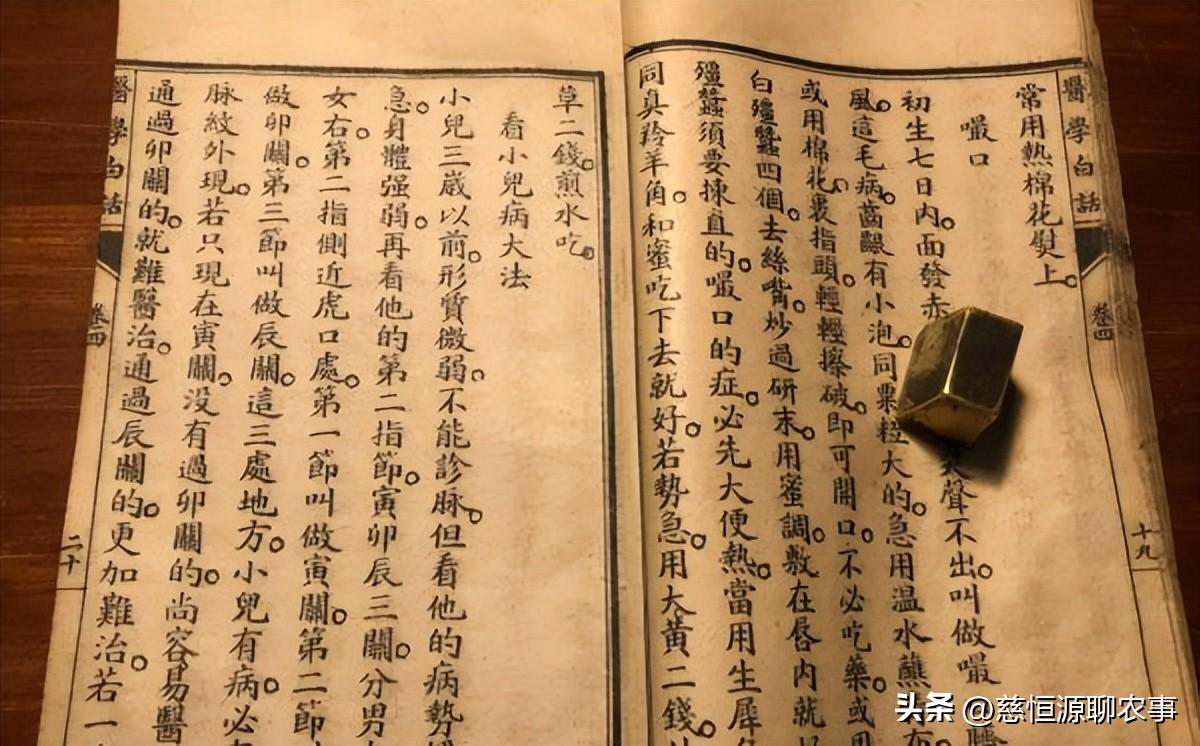 醫學白話
卷四
十九
常用熱棉花熨上。
嘬口
初生七日內。面發赤
聲不出。叫做嘬
風。這毛病。齒齦有小泡。同粟粒大的。急用温水蘸
或用棉花裹指頭。輕輕擦破。即可開口。不必吃藥。或用
白殭蠶四個。去絲嘴。炒過研末。用蜜調。敷在唇內就
殭蠶須要揀直的。嘬口的症。必先大便熱。當用生犀
同真羚羊角。和蜜吃下去就好。若勢急。用大黃二錢。
草二錢。煎水吃。
看小兒病大法
小兒三歲以前。形質微弱。不能診脉。但看他的病勢
急。身體强弱。再看他的第二指節。寅卯辰三關。分男
女右。第二指側近虎口處。第一節叫做寅關。第二節
做卯關。第三節叫做辰關。這三處地方。小兒有病。必
脉紋外現。若只現在寅關。没有過卯關的。尚容易醫
通過卯關的。就難醫治。通過辰關的。更加難治。若一
醫學白話
卷四
二十
头条 @慈恒源聊农事